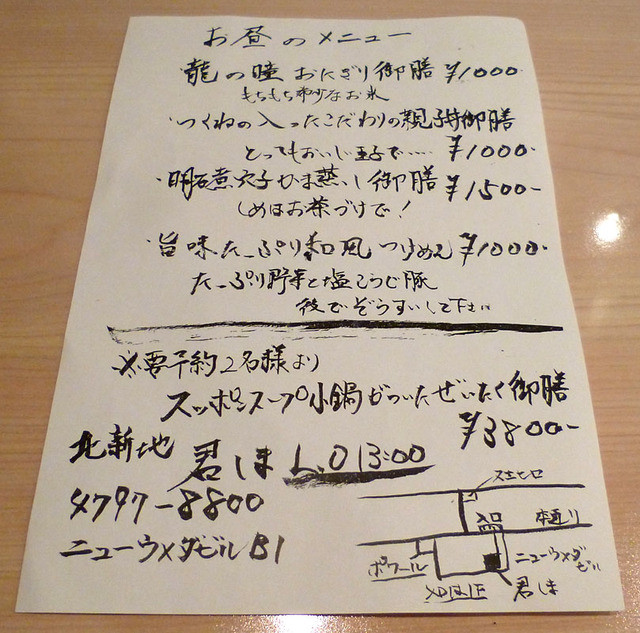 お昼のメニュー
・龍の瞳 おにぎり御膳 ¥1000
もちもち希少なお米
・つくねの入ったこだわりの親子丼御膳
とってもおいしい玉子で‥‥ ¥1000-
・明石煮穴子ひま蒸し御膳 ¥1500-
しめはお茶づけで！
・旨味たっぷり和風つけめん ¥1000-
たっぷり野菜と塩こうじ豚
後でぞうすいして下さい
※要予約2名様より
スッポンスープ小鍋がついたぜいたく御膳
¥3800-
北新地 君しま L.O 13:00
4797-8800
ニューウメダビル B1
入口 本通り
ポワール ニューウメダビル
君しま